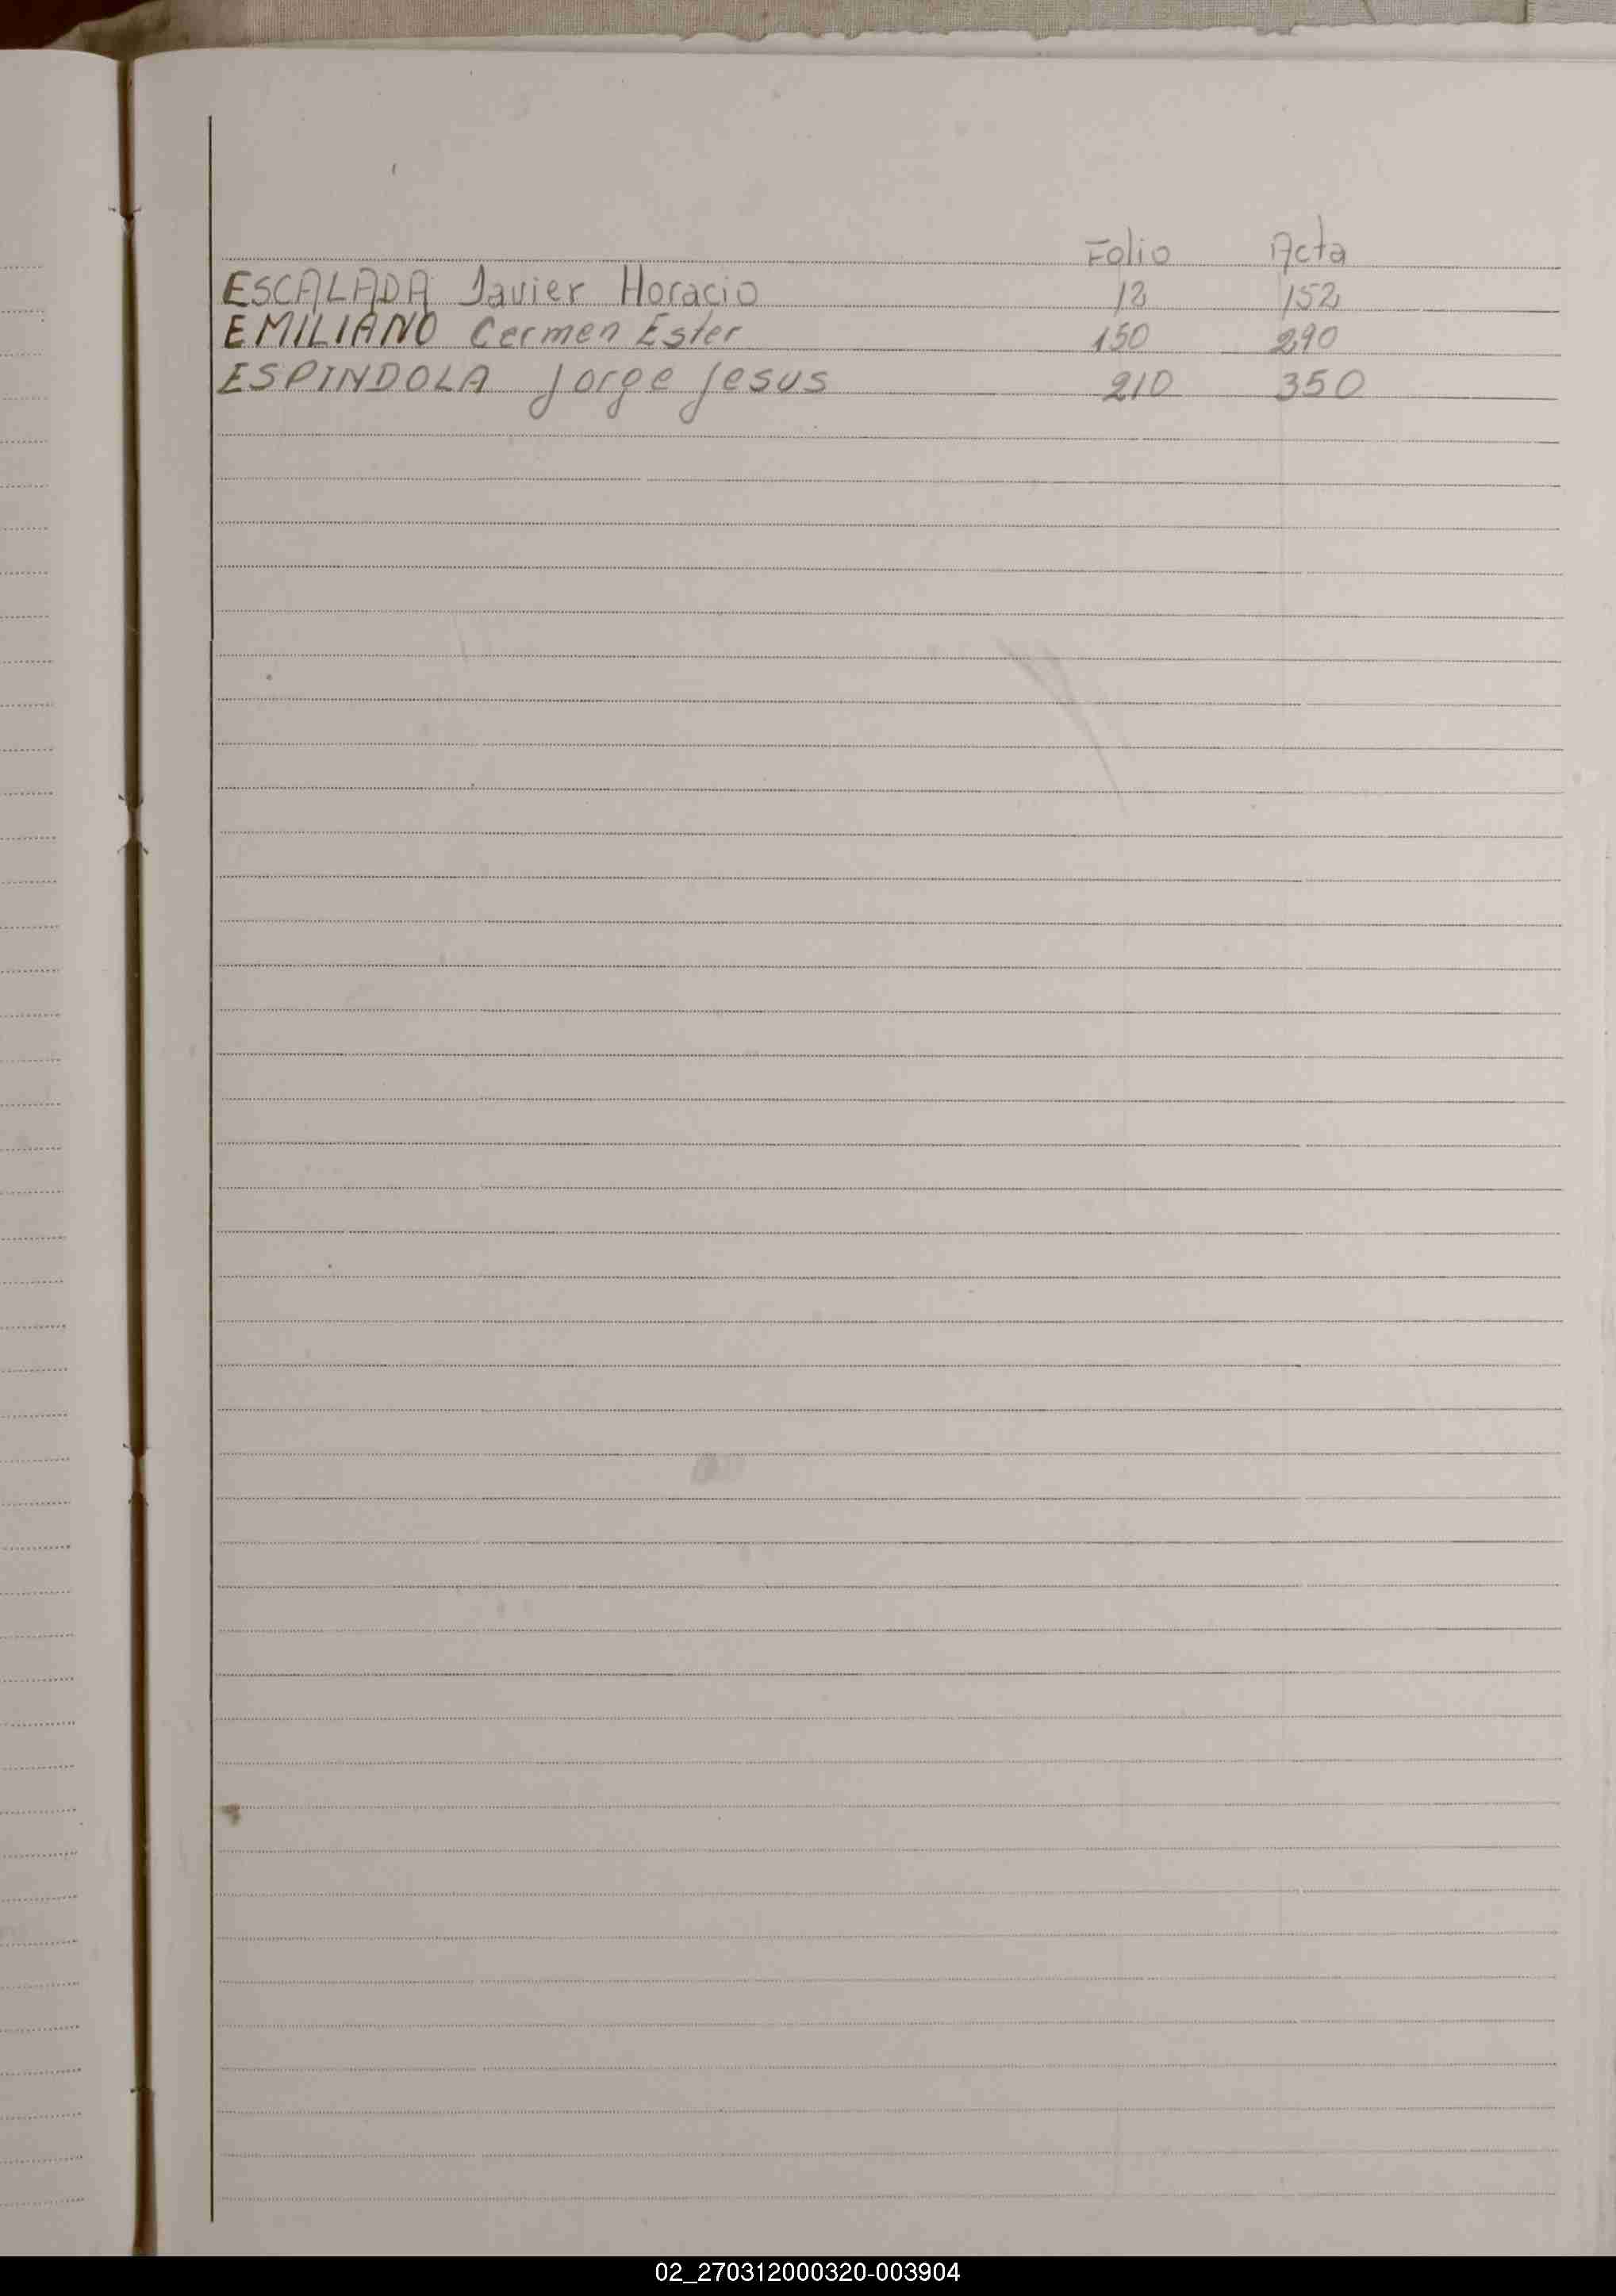 Folio Acta
ESCALADA Javier Horacio 12 152
EMILIANO Cermen Ester 150 290
ESPINDOLA Jorge Jesus 210 350
02_270312000320-003904